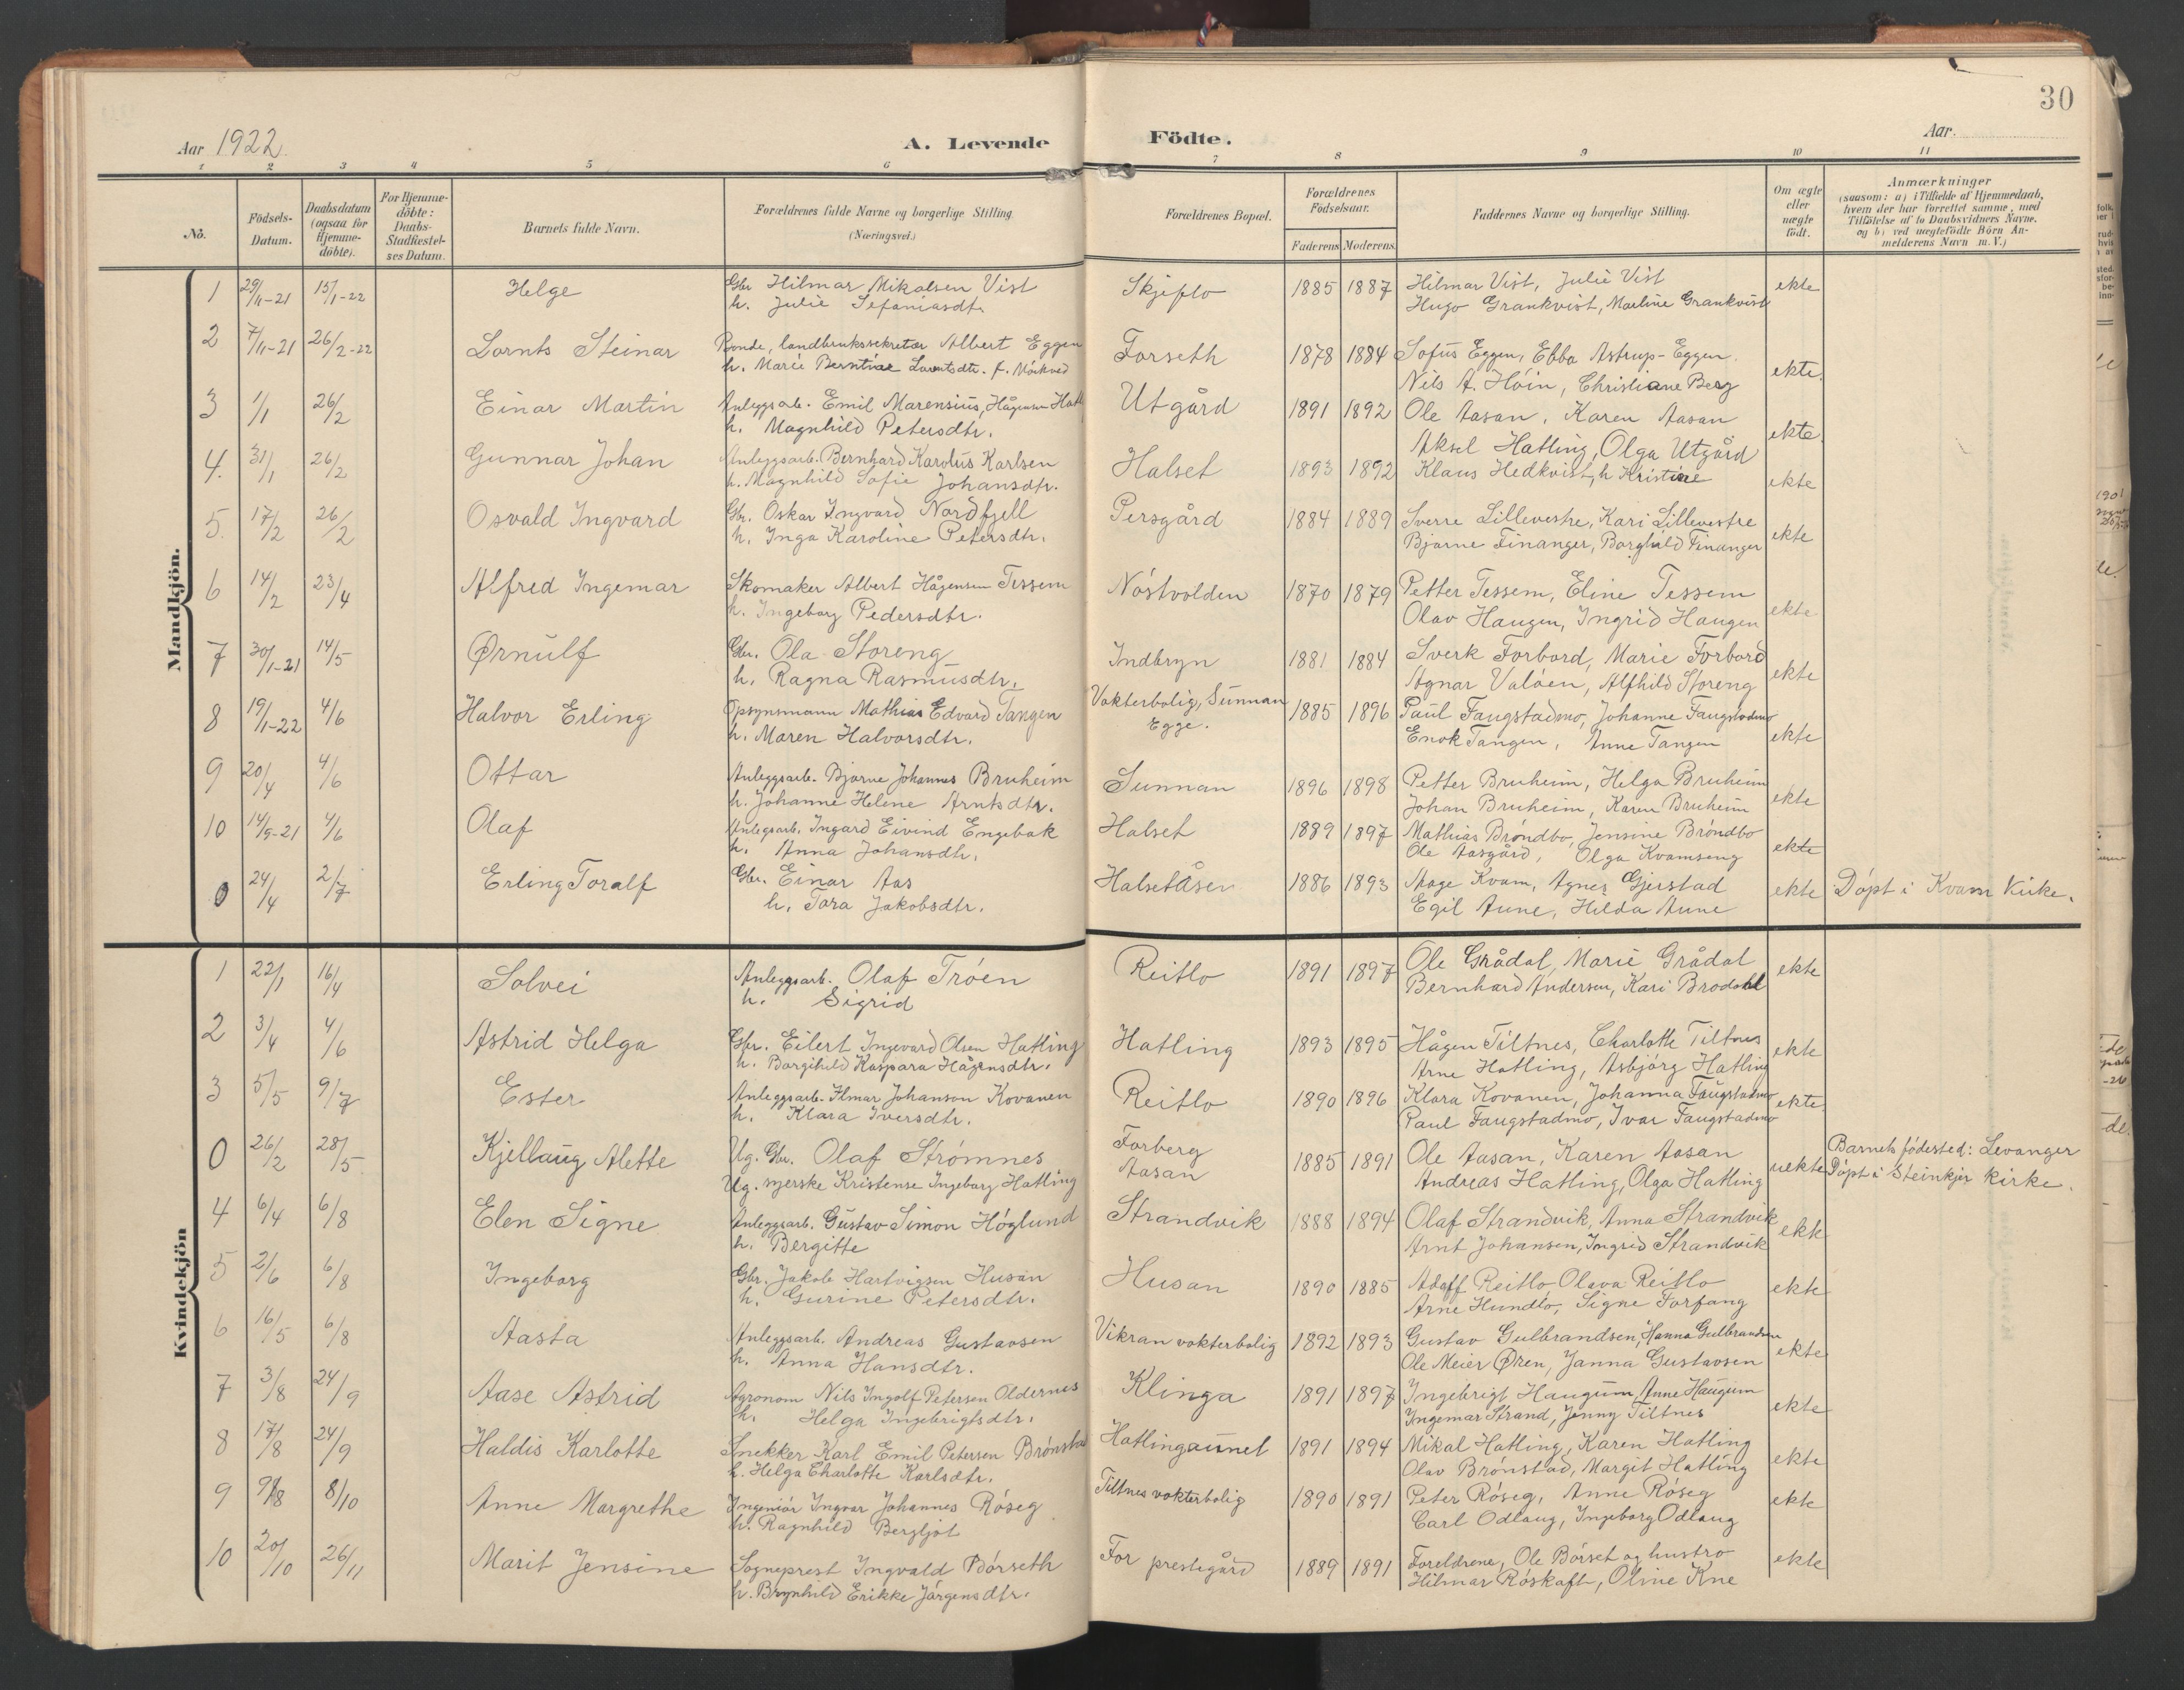 30
Aar 1922.
A. Levende
Födte.
Aar.
1 2 3 4 5 6 7 8 9 10 11
Nō.
Födsels-Datum.
Daabsdatum (ogsaa for Hjemme-döbte).
For Hjemme-döbte: Daabs-Stadfæstel-ses Datum.
Barnets fulde Navn.
Forældrenes fulde Navne og borgerlige Stilling. (Næringsvei.)
Forældrenes Bopæl.
Forældrenes Födselsaar.
Faderens Moderens
Faddernes Navne og borgerlige Stilling.
Om ægte eller uægte födt.
Anmærkninger
(saasom: a) i Tilfælde af Hjemmedaab, hvem der har forrettet samme, med Tilföielse af to Daabsvidners Navne. og b) ved uægtefödte Börn An-melderens Navn m.V.)
Mandkjön.
1 29/11-21 15/1-22 Helge Gbr Hilmar Mikalsen Vist Skjeflo 1885 1887 Hilmar Vist, Julie Vist ekte
h. Julie Sefaniasdtr. Hugo Grankvist, Maeline Grankvist
2 7/11-21 26/2-22 Lornts Steinar Bonde, landbrukssekretær Albert Eggen Forseth 1878 1884 Sofus Eggen, Ebba Astrup-Eggen. ekte.
h. Marie Berntine Lorntsdtr. f. Mörkved Nils A. Höin, Christiane Berg
3 1/1 26/2 Einar Martin Anleggsarb. Emil Marensius, Hågensen Hatl Utgård 1891 1892 Ole Aasan, Karen Aasan ekte.
h. Magnhild Petersdtr. Aksel Hatling, Olga Utgård
4. 31/1 26/2 Gunnar Johan Anleggsarb. Bernhard Karolus Karlsen Halset 1893 1892 Klaus Hedkvist, h Kristine ekte
h. Magnhild Sofie Johansdtr.
5. 17/2 26/2 Osvald Ingvard Gbr. Oskar Ingvard Nordfjell Persgård 1884 1889 Sverre Lillevestre, Kari Lillevestre ekte
h. Inga Karoline Petersdtr. Bjarne Finanger, Borghild Finanger
6 14/2 23/4 Alfred Ingemar Skomaker Albert Hågensen Tessem Nóstvolden 1870 1879 Petter Tessem, Eline Tessem ekte
h. Ingeborg Pedersdtr. Olav Haugen, Ingrid Haugen
7 30/1-21 14/5 Ørnulf Gbr. Ola Storeng Indbryn 1881 1884 Sverk Forbord, Marie Forbord ekte
h. Ragna Rasmusdtr. Agnar Valöen, Alfhild Storeng
8 19/1-22 4/6 Halvor Erling Opsynsmann Mathias Edvard Tangen Vokterbolig, Sunnan Egge. 1885 1896 Paul Faugstadmo, Johanne Faugstadmo ekte
h. Maren Halvorsdtr. Enok Tangen, Anne Tangen
9 20/4 4/6 Ottar Anleggsarb. Bjarne Johannes Bruheim Sunnan 1896 1898 Petter Bruheim, Helga Bruheim ekte
h. Johanne Heline Arntsdtr. Johan Bruheim, Karen Bruheim
10 14/9-21 4/6 Olaf Anlegsarb. Ingard Eivind Engebak Halset 1889 1897 Mathias Bröndbo, Jensine Bröndbo ekte
h. Anna Johansdtr. Ole Aasgård, Olga Kvamseng
0 24/4 2/7 Erling Toralf Gbr. Einar Aas Halsetåsen 1886 1893 Aage Kvam, Agnes Gjerstad ekte Döpt i Kvam Kirke.
h. Tora Jakobsdtr. Egil Aune, Hilda Aune
Kvindekjön
1 22/1 16/4 Solvei Anleggsarb. Olaf Tröen Reitlo 1891 1897 Ole Grådal, Marie Grådal ekte
h. Sigrid Bernhard Andersen, Kari Brodahl
2 3/4 4/6 Astrid Helga Gbr. Eilert Ingevard Olsen Hatling Hatling 1893 1895 Hågen Tiltnes, Charlotte Tiltnes ekte
h. Borgihild Kaspara Hågensdtr. Arne Hatling, Asbjörg Hatling
3 5/5 9/7 Ester Anleggsarb. Ilmar Johanson Kovanen Reitlo 1890 1896 Klara Kovanen, Johanna Faugstadmo ekte.
h. Klara Iversdtr. Paul Faugstadmo, Ivar Faugstadmo
0 26/2 28/5 Kjellaug Alette Ug. Gbr. Olaf Strömnes Forberg 1885 1891 Ole Aasan, Karen Aasan uekte Barnets födested: Levanger
Ug. syerske Kristense Ingeborg Hatling Aasan Andreas Hatling, Olga Hatling Döpt i Steinkjer kirke.
4 6/4 6/8 Elen Signe Anleggsarb. Gustav Simon Höglund Strandvik 1888 1894 Olaf Strandvik, Anna Strandvik ekte
h. Bergitte Arnt Johansen, Ingrid Strandvik
5 2/6 6/8 Ingeborg Gbr. Jakob Hartvigsen Husan Husan 1890 1885 Adolf Reitlo Olava Reitlo ekte
h. Gurine Petersdtr. Arne Hundlo, Signe Forfang
6 16/5 6/8 Aasta Anleggsarb. Andreas Gustavsen Vikran vokterbolig 1892 1893 Gustav Gulbrandsen, Hanna Gulbrandsen ekte
h. Anna Hansdtr. Ole Meier Øren, Janna Gustavsen
7 3/8 24/9 Aase Astrid Agronom Nils Ingolf Petersen Oldernes Klinga 1891 1897 Ingebrigt Haugum, Anne Haugum ekte
h. Helga Ingebrigtsdtr. Ingemar Strand, Jenny Tiltnes
8 17/8 24/9 Haldis Karlotte Snekker Karl Emil Petersen Brönstad Hatlingaunet 1891 1894 Mikal Hatling, Karen Hatling ekte
h. Helga Charlotte Karlsdtr. Olav Brönstad, Margit Hatling
9 8/10 Anne Margrethe Ingeniör Ingvar Johannes Röseg Tiltnes vokterbolig 1890 1891 Peter Röseg, Anne Röseg ekte
h. Ragnhild Bergljot Carl Odlaug, Ingeborg Odlaug
10 20/10 26/11 Marit Jensine Sogneprest Ingvald Börseth For prestegård 1889 1891 Foreldrene, Ole Börset og hustro ekte
h. Brynhild Erikke Jörgensdtr. Hilmar Röskaft, Oline Kne